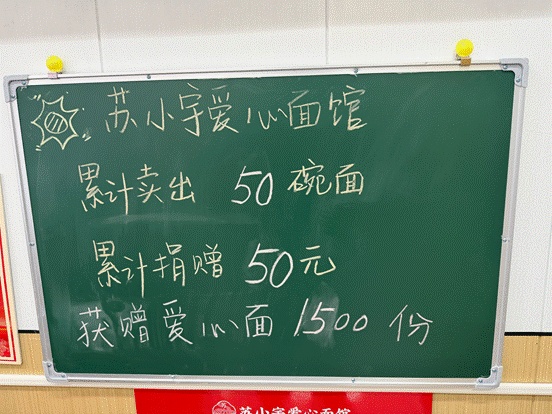 苏小宇爱心面馆
累计卖出 50 碗面
累计捐赠 50元
获赠爱心面 1500 份
苏小宇爱心面馆